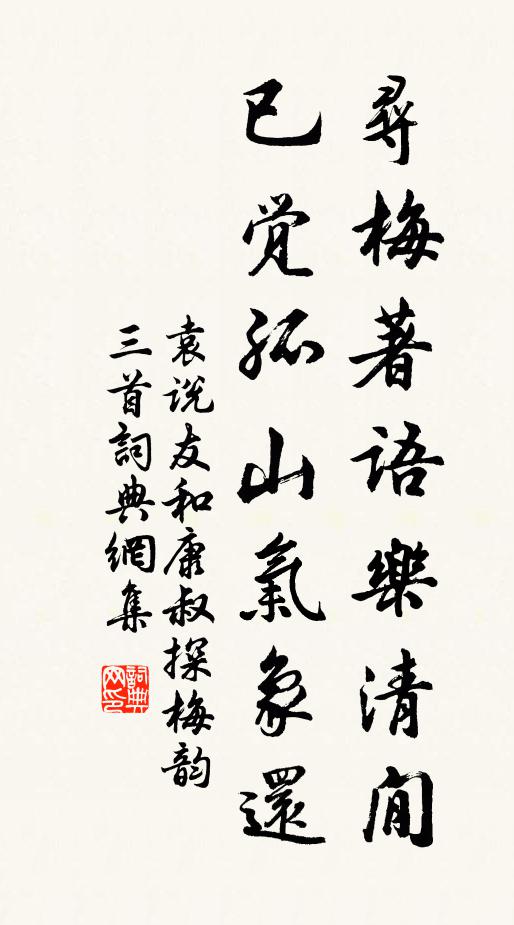 尋梅著語樂清閒
已覚孤山氣象還
袁説友和康叔探梅韵
三首詞典網集
詞典
网印